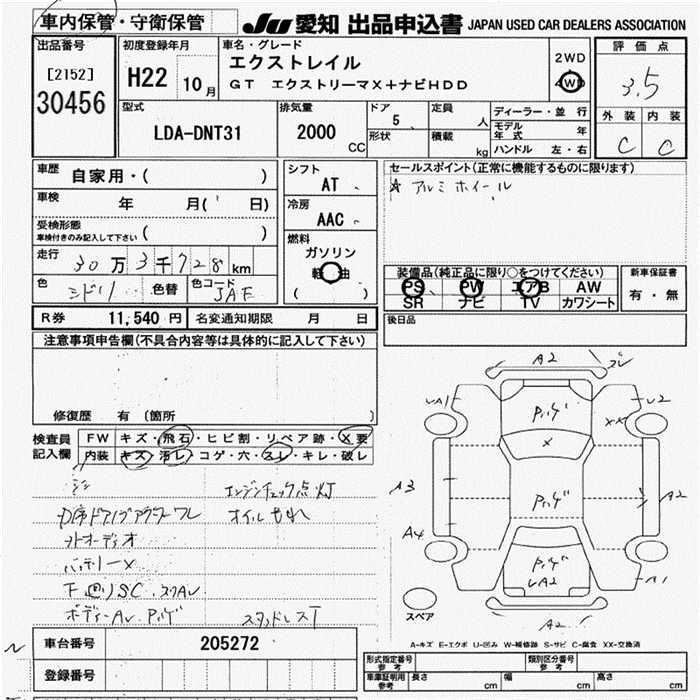 車内保管・守衛保管
JU 愛知 出品申込書 JAPAN USED CAR DEALERS ASSOCIATION
出品番号
[2152]
30456
初度登録年月
H22 10月
車名・グレード
エクストレイル
GT エクストリーマX+ナビHDD
2WD
4WD
評価点
3.5
外装 内装
C C
型式
LDA-DNT31
排気量
2000
CC
ドア
5
形状
定員
人
積載
kg
ディーラー・並行
モデル年式 年
ハンドル 左・右
車歴
自家用・( )
車検
年 月( 日)
受検形態
車検付きのみ記入して下さい ( )
走行
30万3千728km
色
ミドリ
色替
色コード
JAE
シフト
AT
冷房
AAC
燃料
ガソリン
軽油
( )
セールスポイント(正常に機能するものに限ります)
アルミホイール
装備品(純正品に限り○をつけてください)
PS PW エアB AW
SR ナビ TV カワシート
新車保証書
有・無
R券 11,540円 名変通知期限 月 日
後日品
注意事項申告欄(不具合内容等は具体的に記入して下さい)
修復歴 有 (箇所 )
検査員記入欄
FW キズ・飛石・ヒビ割・リペア跡・X要
内装 キズ・汚レ・コゲ・穴・スレ・キレ・破レ
エンジンチェック点灯
オイルもれ
外オーディオ
バッテリーX
ボディーAU.Pハゲ
スタッドレスT
A2
A1
U2
XX
Pハゲ
X
A3
Pハゲ
A2
A4
Pハゲ
UA2
A1
A2
スペア
A-キズ E-エクボ U-凹み W-補修跡 S-サビ C-腐食 XX-交換済
車台番号 205272
登録番号
形式指定番号 参考
類別区分番号 参考
車庫証明用 参考
長さ cm
幅 cm
高さ cm